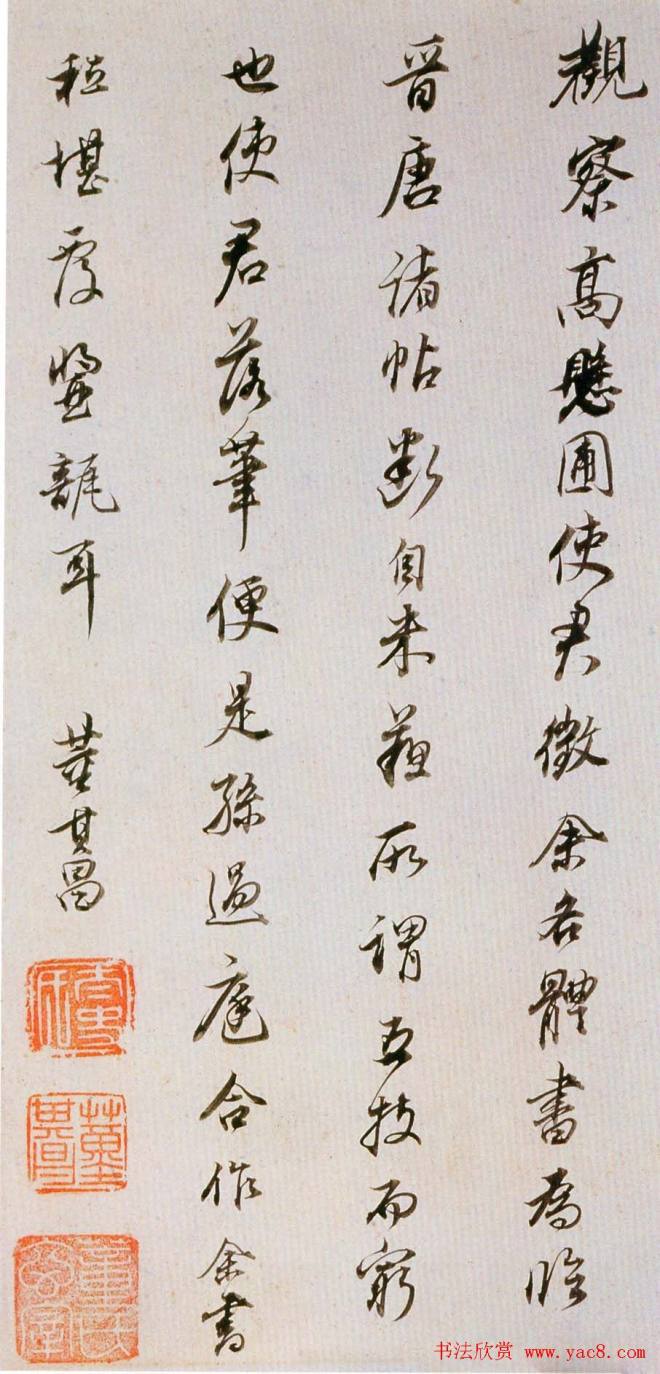 觀察高懸圃使君徵余各體書為臨
晉唐諸帖斷自米蘇所謂五技而窮
也使君落筆便是孫過庭合作余書
秪堪覆醬瓿耳 董其昌
董其昌
书法欣赏 www.yac8.com